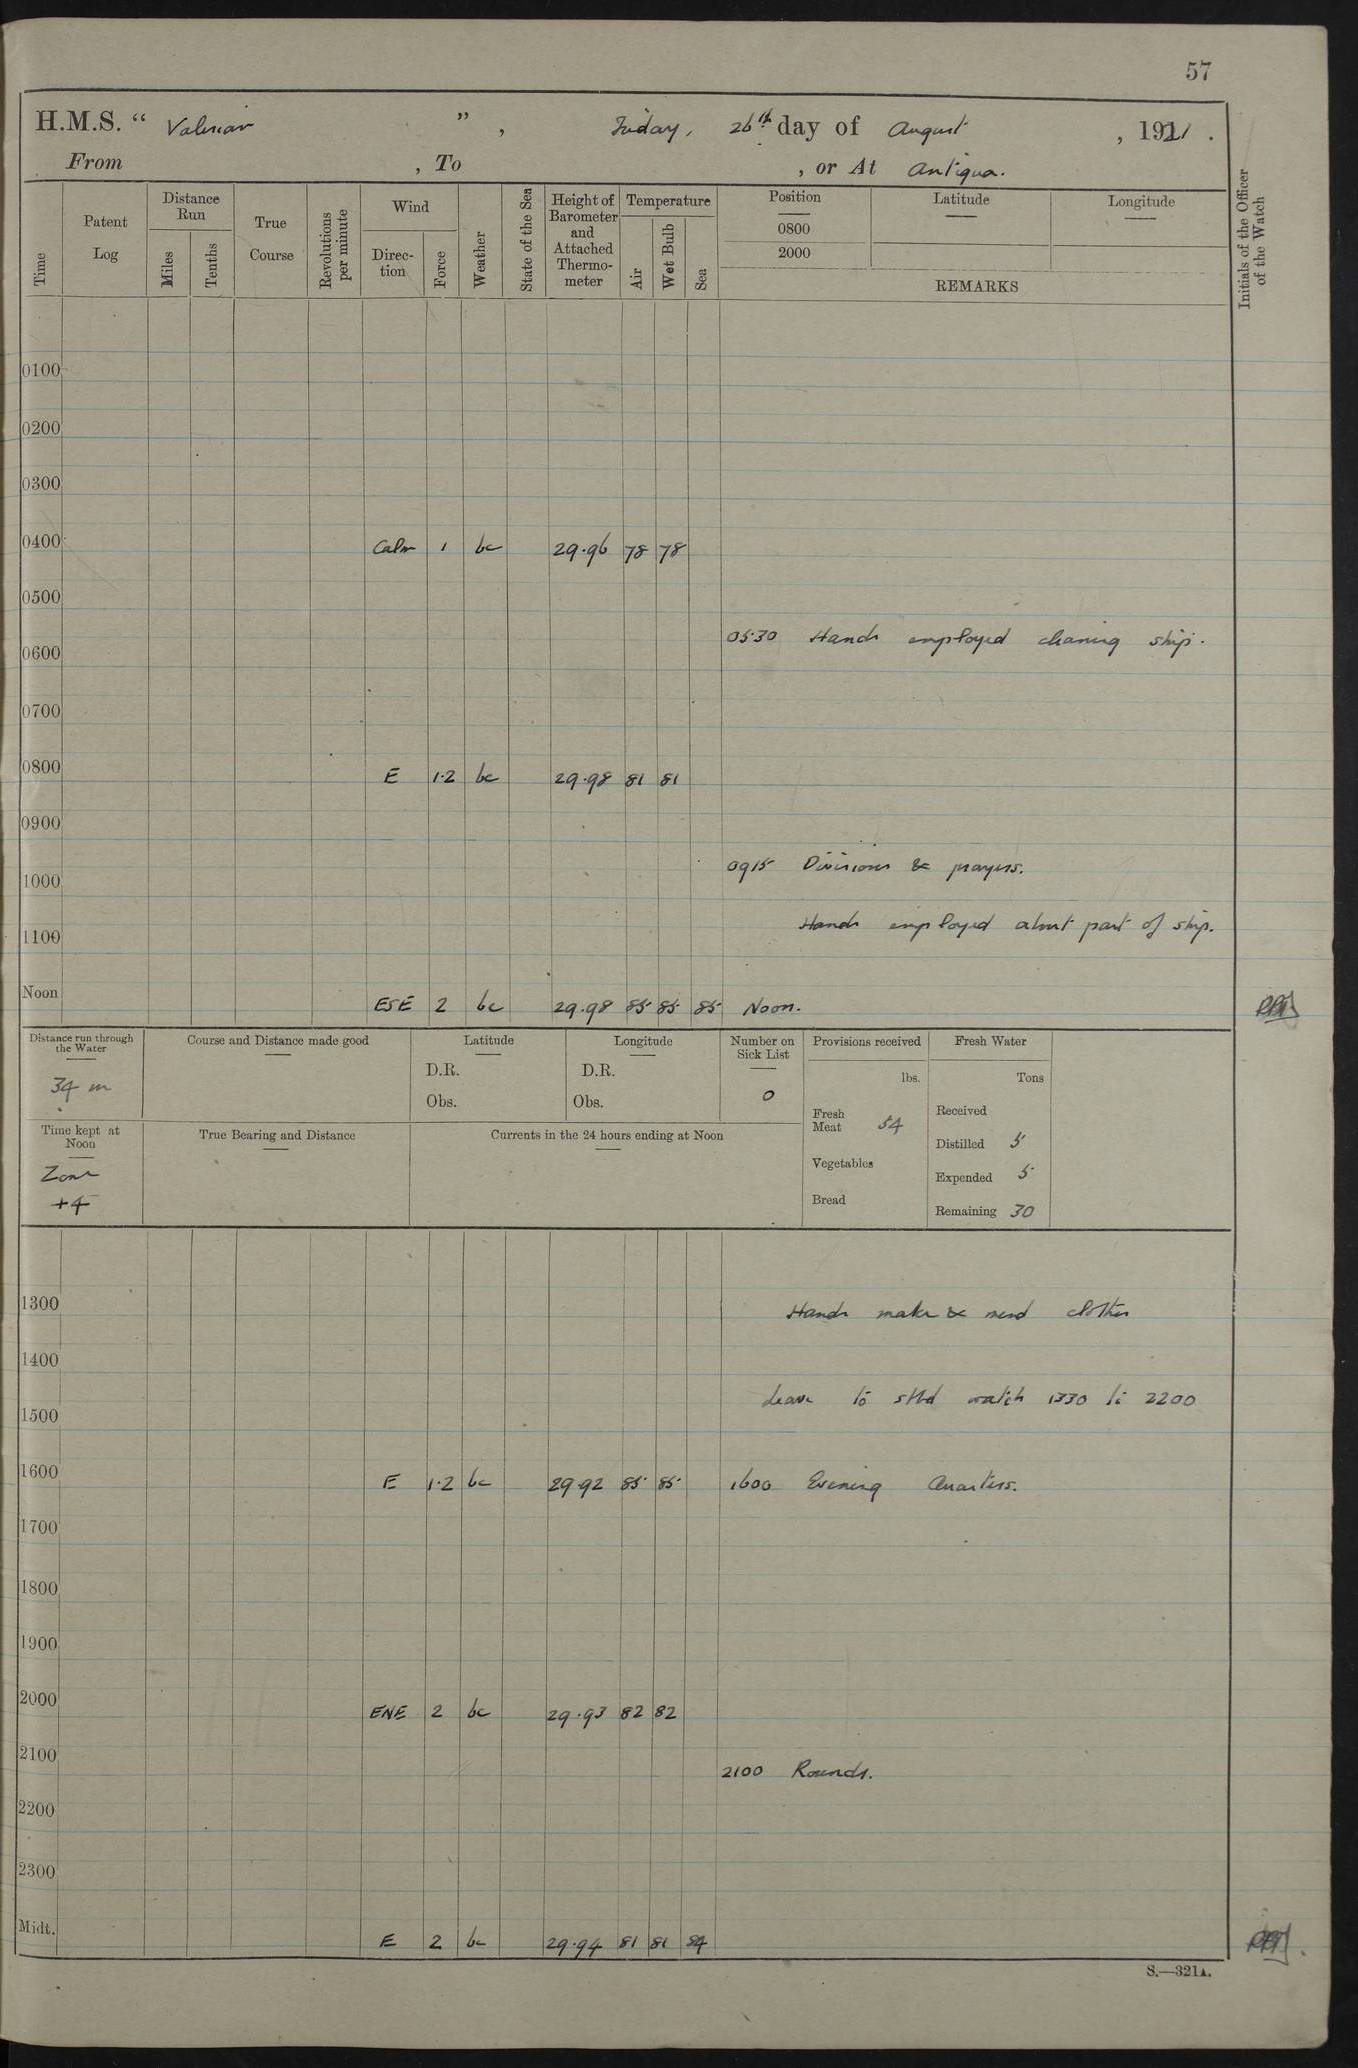 57
H.M.S. “ Valerian ” , Friday, 26th day of August , 1921 .
From , To , or At Antigua.
Time
Patent Log
Distance Run
Miles
Tenths
True Course
Revolutions per minute
Wind
Direc-tion
Force
Weather
State of the Sea
Height of Barometer and Attached Thermo-meter
Temperature
Air
Wet Bulb
Sea
Position
0800
2000
Latitude
Longitude
REMARKS
Initials of the Officer of the Watch
0100
0200
0300
0400 Calm 1 bc 29.96 78 78
0500
0530 Hands employed cleaning ship.
0600
0700
0800 E 1.2 bc 29.98 81 81
0900
0915 Divisions & prayers.
1000
Hands employed about part of ship.
1100
Noon ESE 2 bc 29.98 85 85 85 Noon.
Distance run through the Water
34 m
Course and Distance made good
Latitude
D.R.
Obs.
Longitude
D.R.
Obs.
Number on Sick List
0
Provisions received
lbs.
Fresh Meat 54
Vegetables
Bread
Fresh Water
Tons
Received
Distilled 5
Expended 5
Remaining 30
Time kept at Noon
Zone
+4
True Bearing and Distance
Currents in the 24 hours ending at Noon
1300
Hands make & mend clothes
1400
Leave to stbd watch 1330 to 2200
1500
1600 E 1.2 bc 29.92 85 85 1600 Evening Quarters.
1700
1800
1900
2000 ENE 2 bc 29.93 82 82
2100
2100 Rounds.
2200
2300
Midt. E 2 bc 29.94 81 81 84
S.—321A.